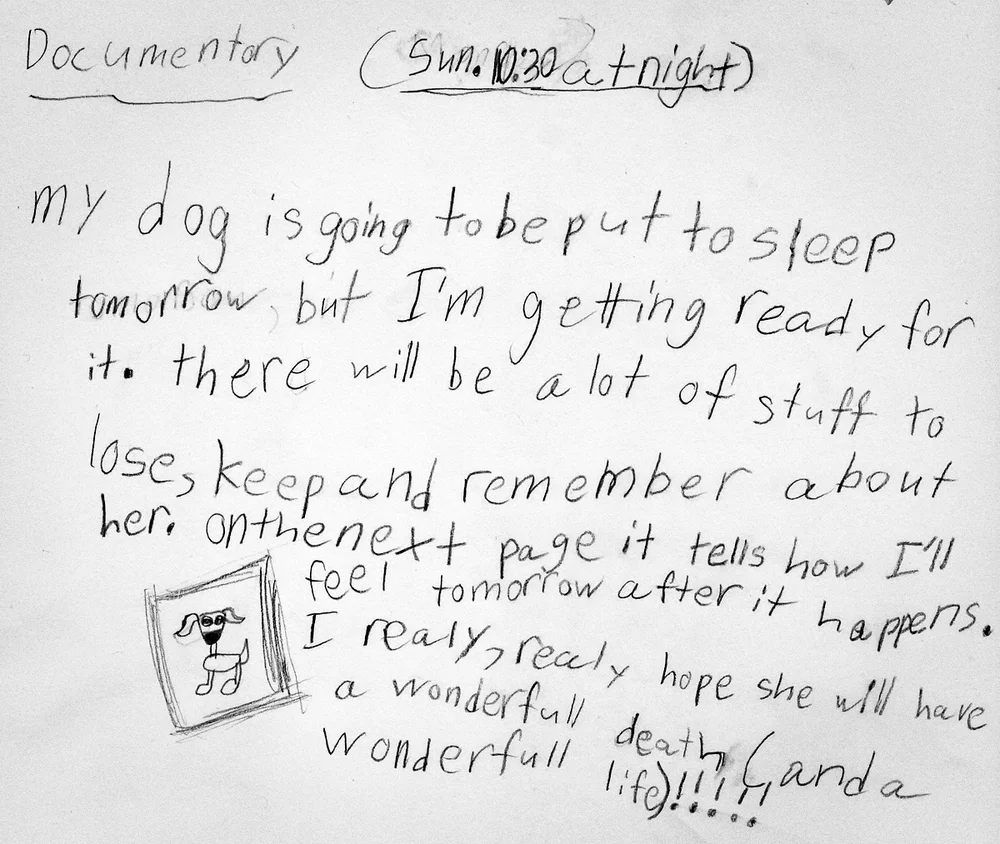 Documentory (Sun. 10:30 at night)
my dog is going to be put to sleep
tomorrow, but I'm getting ready for
it. there will be a lot of stuff to
lose, keep and remember about
her. on the next page it tells how I'll
feel tomorrow after it happens.
I realy, realy hope she will have
a wonderfull death, (and a
wonderfull life)!!!!!